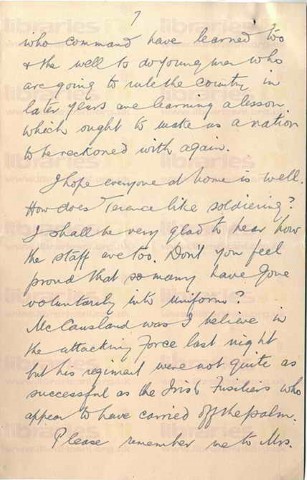 7
who command have learned too
& the well to do young men who
are going to rule the country in
later years are learning a lesson
which ought to make us a nation
to be reckoned with again.
I hope everyone at home is well.
How does Terence like soldiering?
I shall be very glad to hear how
the staff are too. Don't you feel
proud that so many have gone
voluntarily into uniform?
McCausland was I believe in
the attacking Force last night
but his regiment were not quite as
successful as the Irish Fusiliers who
appear to have carried off the palm.
Please remember me to Mrs.